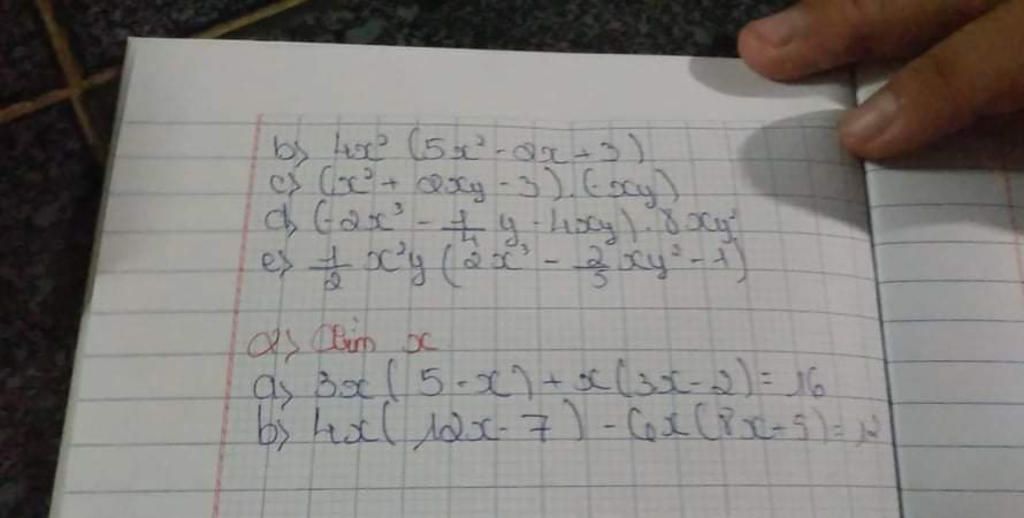 b) 4x² (5x² - 2x + 3)
c) (x² + 2xy - 3).(-xy)
d) (-2x³ - 1/4 y - 4xy).8xy²
e) 1/2 x²y (2x³ - 2/5 xy² - 1)
2) Tìm x
a) 3x( 5 - x) + x(3x - 2) = 16
b) 4x( 12x - 7) - 6x(8x - 5) =